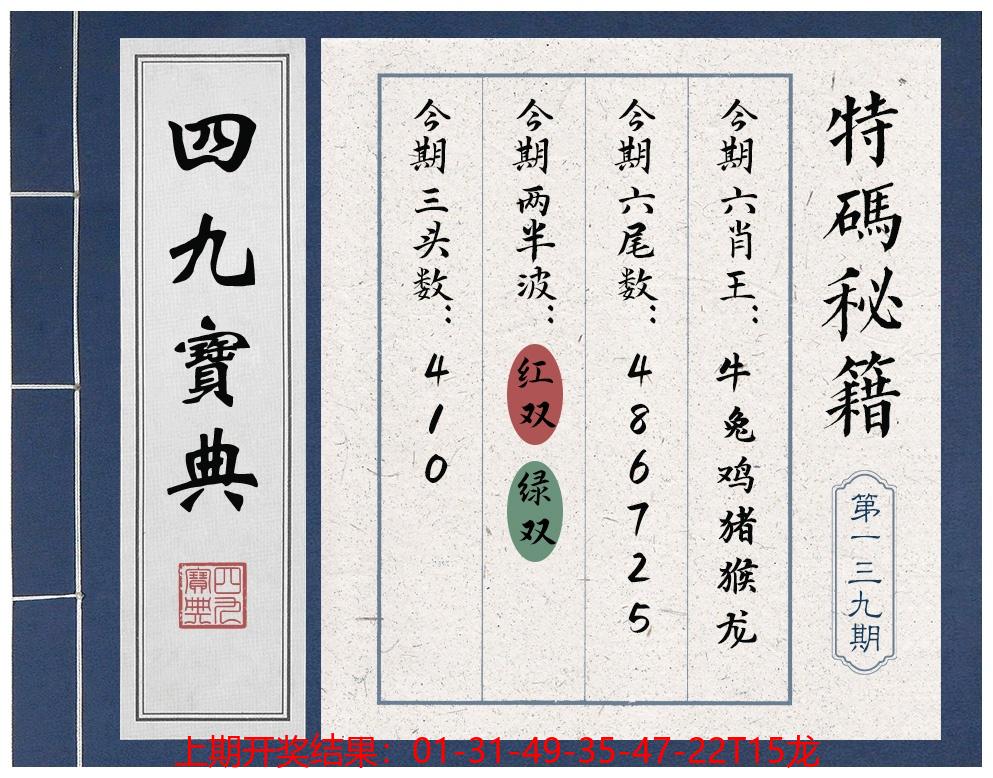 特碼秘籍
第一三九期
今期六肖王：牛兔鸡猪猴龙
今期六尾数：486725
今期两半波：红双 绿双
今期三头数：410
四九寶典
四九寶典
上期开奖结果：01-31-49-35-47-22T15龙